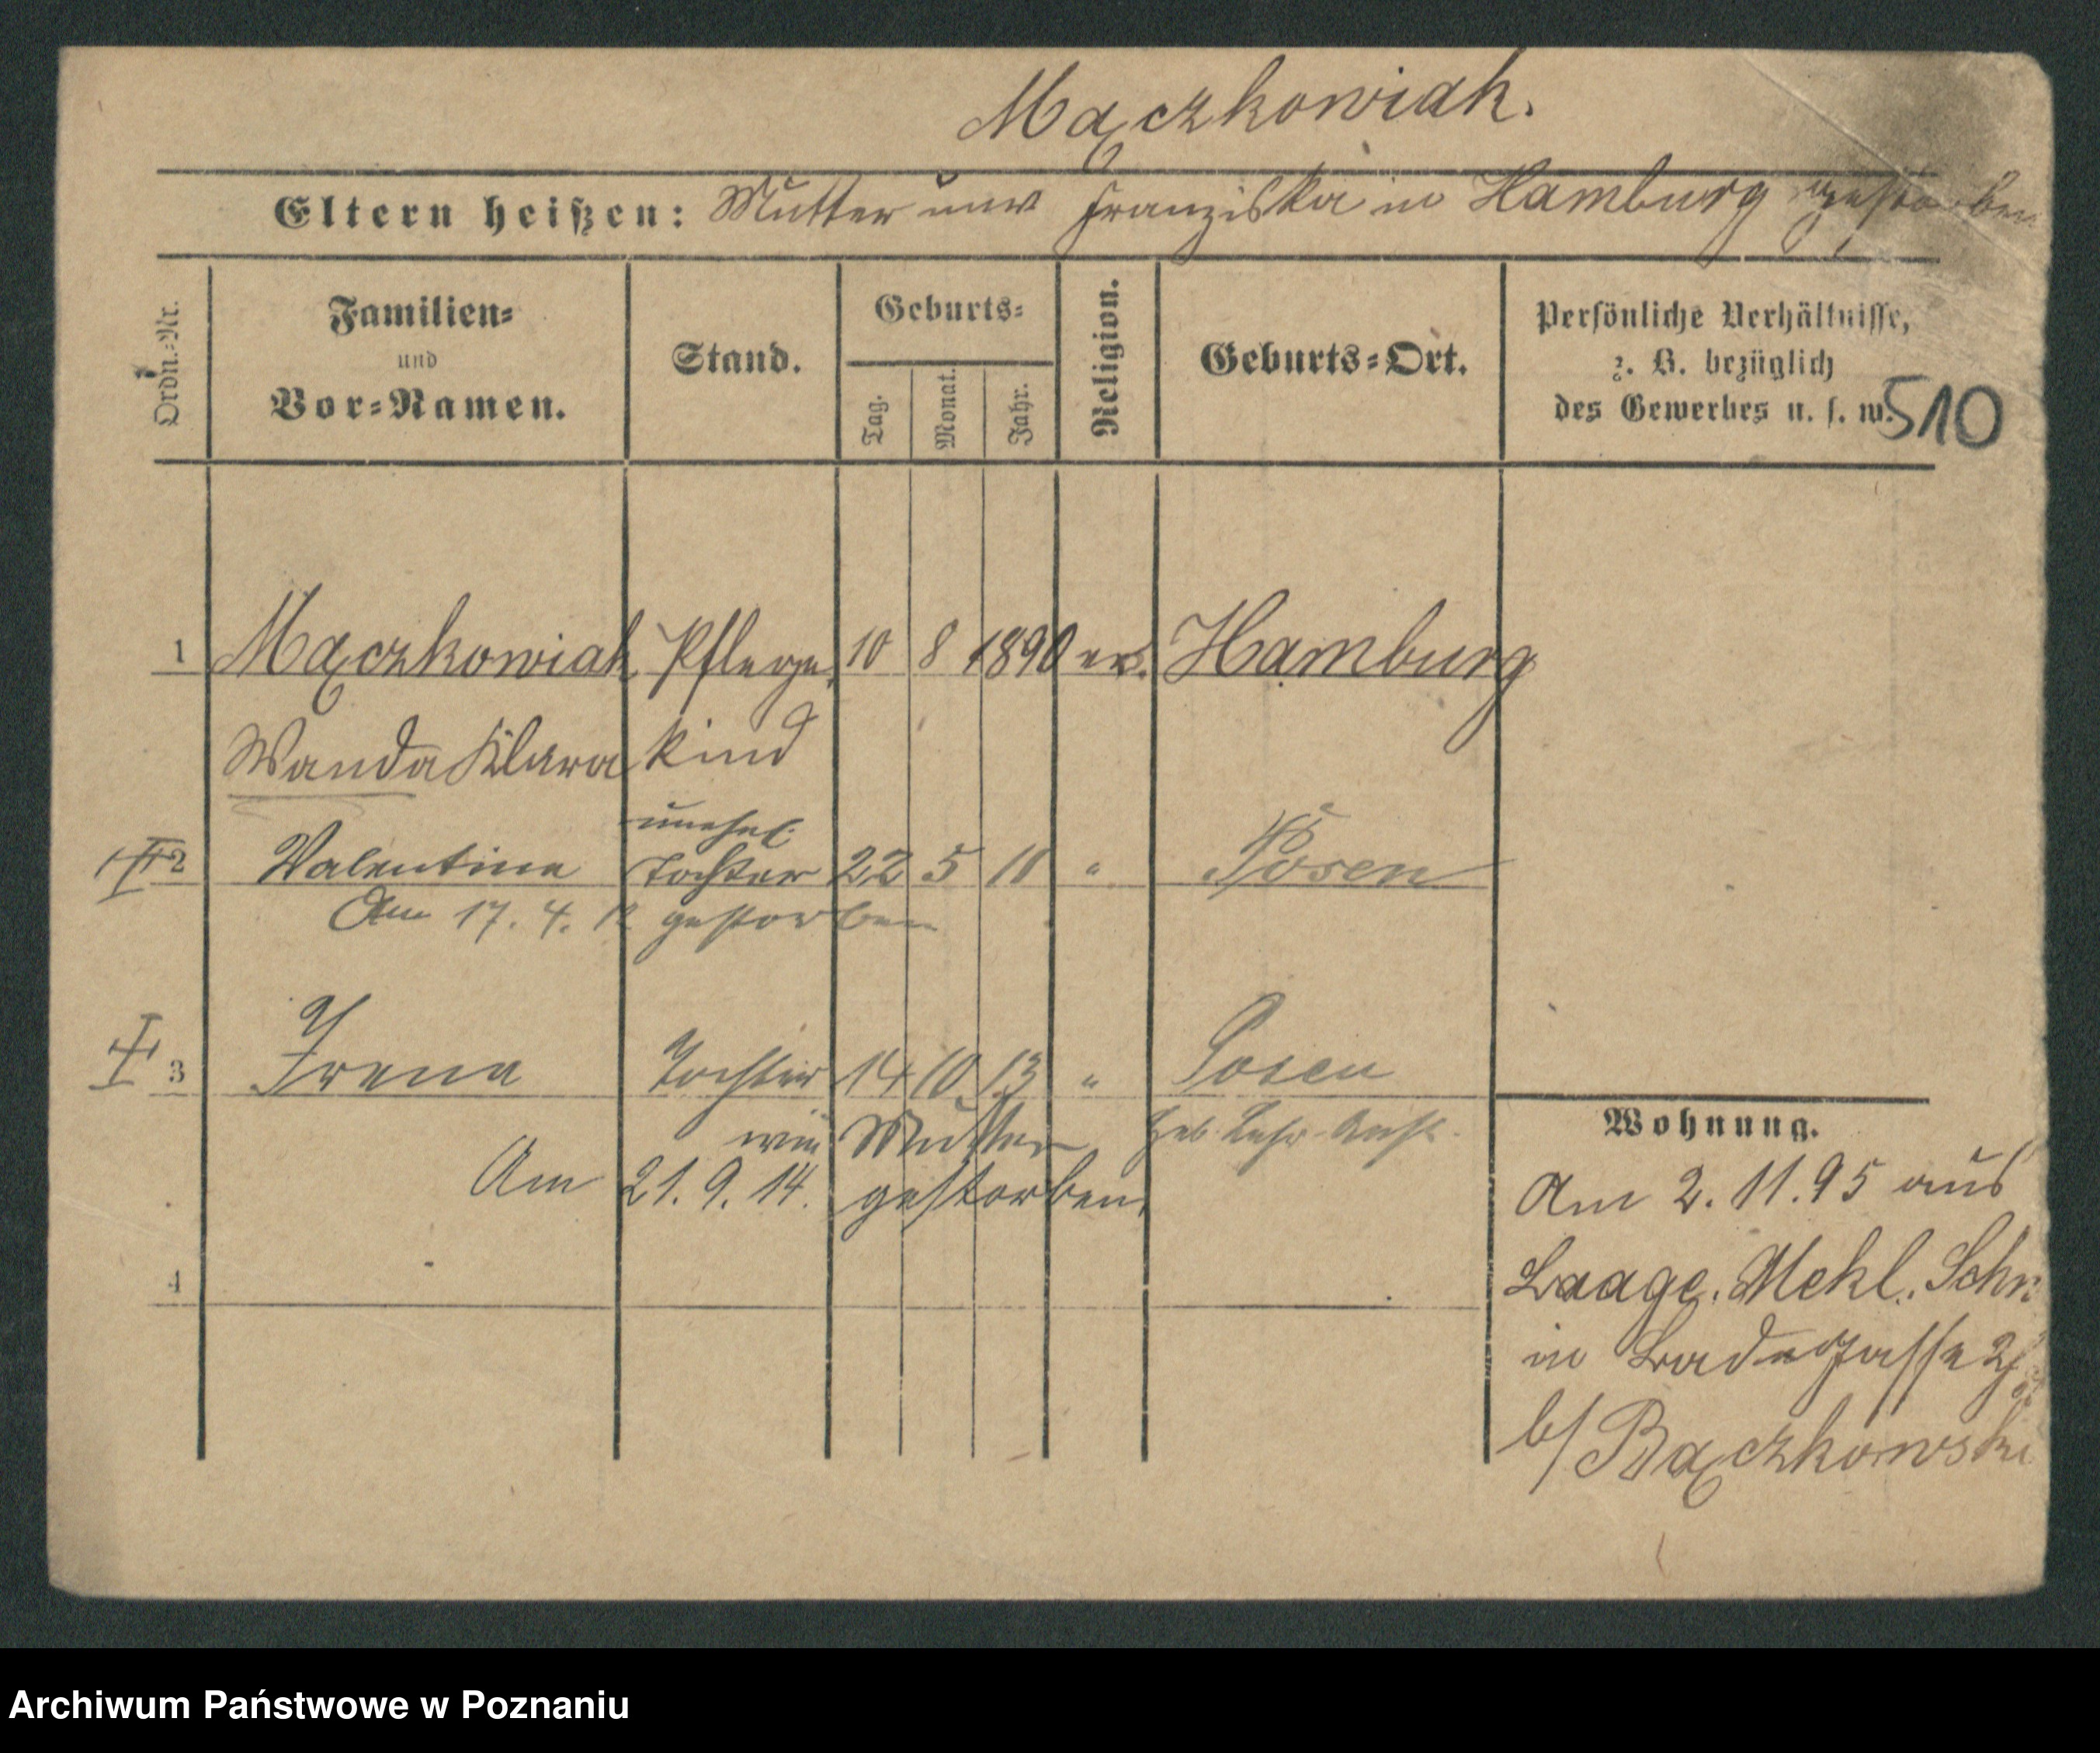 Mączkowiak.
Eltern heißen: Mutter unv Franziska in Hamburg gestorben
Ordn.-Nr.
Familien-
und
Vor-Namen.
Stand.
Geburts-
Tag.
Monat.
Jahr.
Religion.
Geburts-Ort.
Persönliche Verhältnisse,
z. B. bezüglich
des Gewerbes u. s. w.
510
1 Mączkowiak Pflege, 10 8 1890 Hamburg
Wanda Klara kind
unehel.
2 Valentine Tochter 22 5 11 " Posen
Am 17. 4. 12 gestorben
3 Irena Tochter 14 10 13 " Posen
Mutter
Am 21. 9. 14. gestorben.
4
Wohnung.
Am 2. 11. 95 aus
Laage. Mekl. Schw
in
b/ Bączkowski
Archiwum Państwowe w Poznaniu